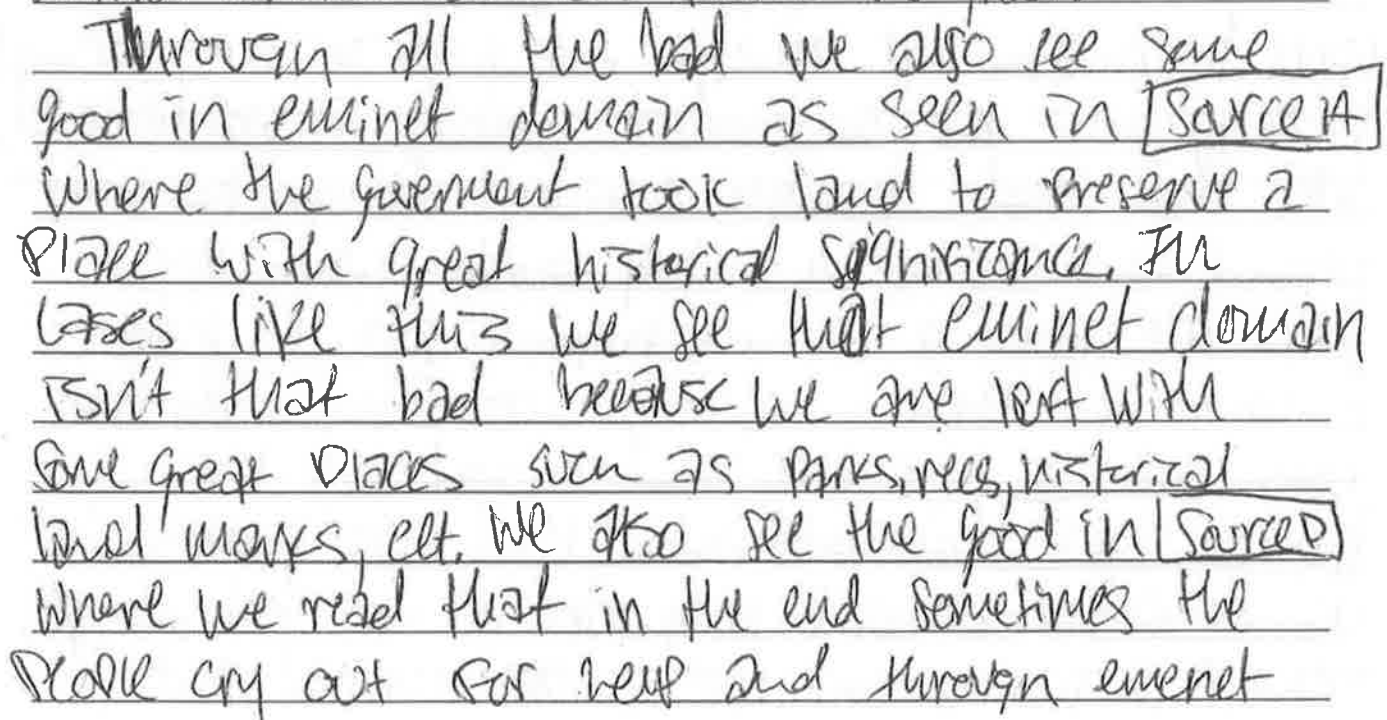 Through all the bad we also see some
good in eminet domain as seen in Source A
Where the goverment took land to preserve a
place with great historical significance. In
cases like this we see that eminet domain
isn't that bad because we are left with
some great places such as parks, recs, historical
land marks, ect. We also see the good in Source D
where we read that in the end sometimes the
people cry out for help and through emenet